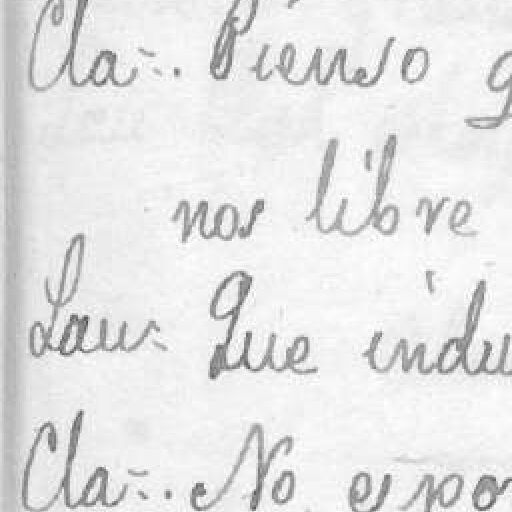 Cla=. Pienso q
nos libre
Lau=. Que indu
Cla=. No es po